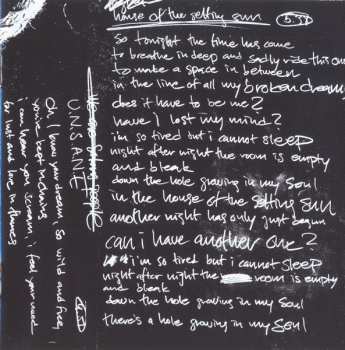 house of the setting sun 5.37
so tonight the time has come
to breathe in deep and sadly ride this one
to make a space in between
in the line of all my broken dreams
does it have to be me?
have I lost my mind?
i'm so tired but i cannot sleep
night after night the room is empty
and bleak
down the hole growing in my soul
in the house of the setting sun
another night has only just begun
can i have another one?
i'm so tired but i cannot sleep
night after night the room is empty
and bleak
down the hole growing in my soul
there's a hole growing in my soul
UNSANE
Oh, I know your dream, so wild and free,
you've kept
i can hear you scream, i feel your need
for lust and love in flames